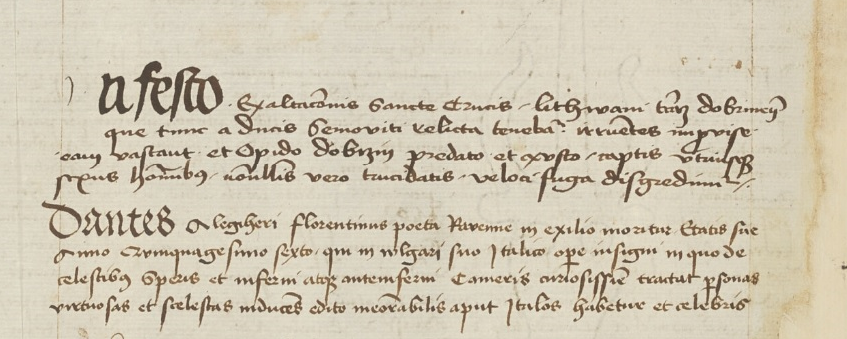 n festo Exaltacōnis Sancte Crucis lithwani trāȝ dobrineñ
que tunc a ducis Semoviti relicta tenebaᷣ irruētes improvise
eam vastant et Opido dobrzin predato et exusto captis utriusqȝ
sexus hōībus nōnullis vero trucidatis veloci fuga disgrediūtur
Dantes Alegiheri florentinus poeta Ravenne in exilio moritur Etatis sue
Anno Quinquagesimo sexto qui in wlgari suo Italico ope insigni in quo de
celestibus Speris et inferni atqȝ anteinferni Cameris curiosissīe tractat psonas
virtuosas et scelestas inducēs edito meōrabilis aput Italos habetur et celebris